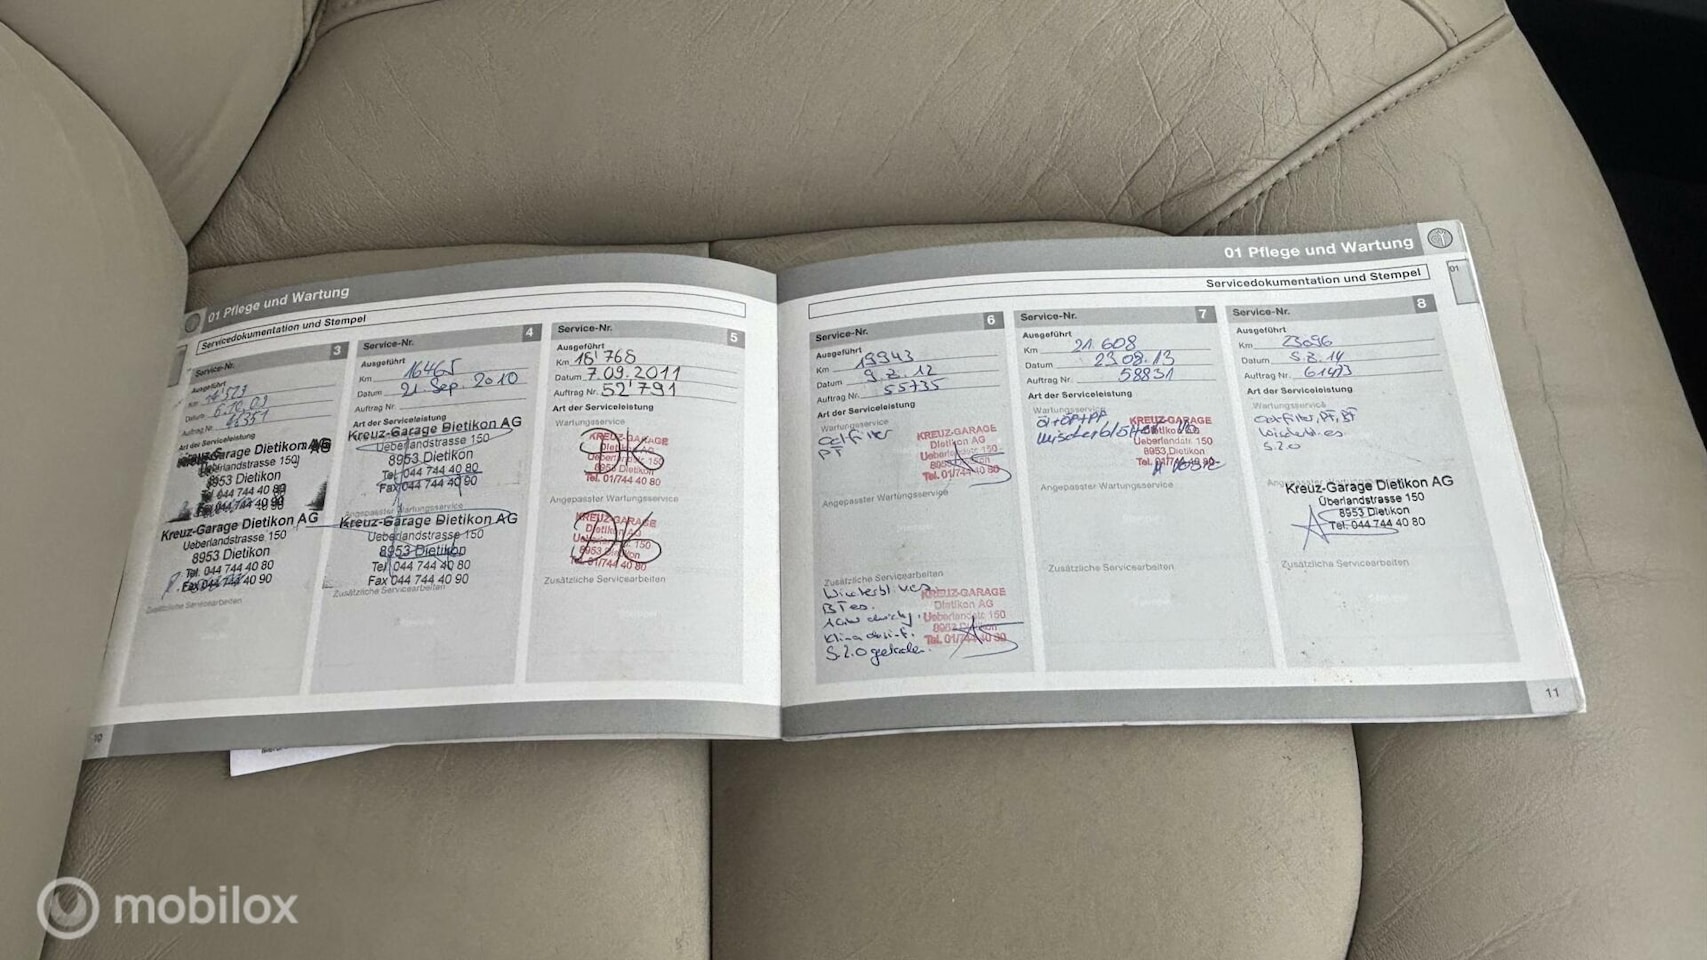 01 Pflege und Wartung
Servicedokumentation und Stempel
Service-Nr. 3
Ausgeführt
Km 14'523
Datum 6.10.09
Auftrag Nr.
Art der Serviceleistung
Kreuz-Garage Dietikon AG
Ueberlandstrasse 150
8953 Dietikon
Tel. 044 744 40 80
Fax 044 744 40 90
Kreuz-Garage Dietikon AG
Ueberlandstrasse 150
8953 Dietikon
Tel. 044 744 40 80
Fax 044 744 40 90
Zusätzliche Servicearbeiten
10
Service-Nr. 4
Ausgeführt
Km 16465
Datum 21. Sep. 2010
Auftrag Nr.
Art der Serviceleistung
Kreuz-Garage Dietikon AG
Ueberlandstrasse 150
8953 Dietikon
Tel 044 744 40 80
Fax 044 744 40 90
Angepasster Wartungsservice
Kreuz-Garage Dietikon AG
Ueberlandstrasse 150
8953 Dietikon
Tel. 044 744 40 80
Fax 044 744 40 90
Zusätzliche Servicearbeiten
Service-Nr. 5
Ausgeführt
Km 18'768
Datum 7.09.2011
Auftrag Nr. 52'791
Art der Serviceleistung
Wartungsservice
KREUZ-GARAGE
Dietikon AG
Ueberlandstr. 150
8953 Dietikon
Tel. 01/744 40 80
Angepasster Wartungsservice
KREUZ-GARAGE
Dietikon AG
Ueberlandstr. 150
8953 Dietikon
Tel. 01/744 40 80
Zusätzliche Servicearbeiten
01 Pflege und Wartung
01
Servicedokumentation und Stempel
Service-Nr. 6
Ausgeführt
Km 19943
Datum 9.2.12
Auftrag Nr. 55735
Art der Serviceleistung
Wartungsservice
Oelfilter
PF
KREUZ-GARAGE
Dietikon AG
Ueberlandstr. 150
8953 Dietikon
Tel. 01/744 40 80
Angepasster Wartungsservice
Zusätzliche Servicearbeiten
KREUZ-GARAGE
Dietikon AG
Ueberlandstr. 150
8953 Dietikon
Tel. 01/744 40 80
Service-Nr. 7
Ausgeführt
Km 21.608
Datum 23.08.13
Auftrag Nr. 58831
Art der Serviceleistung
Wartungsservice
KREUZ-GARAGE
Dietikon AG
Ueberlandstr. 150
8953 Dietikon
Tel. 01/744 40 80
Angepasster Wartungsservice
Zusätzliche Servicearbeiten
Service-Nr. 8
Ausgeführt
Km 23096
Datum 5.8.14
Auftrag Nr.
Art der Serviceleistung
Wartungsservice
Oelfilter, PF, BF
Kreuz-Garage Dietikon AG
Überlandstrasse 150
8953 Dietikon
Tel. 044 744 40 80
Zusätzliche Servicearbeiten
11
mobilox